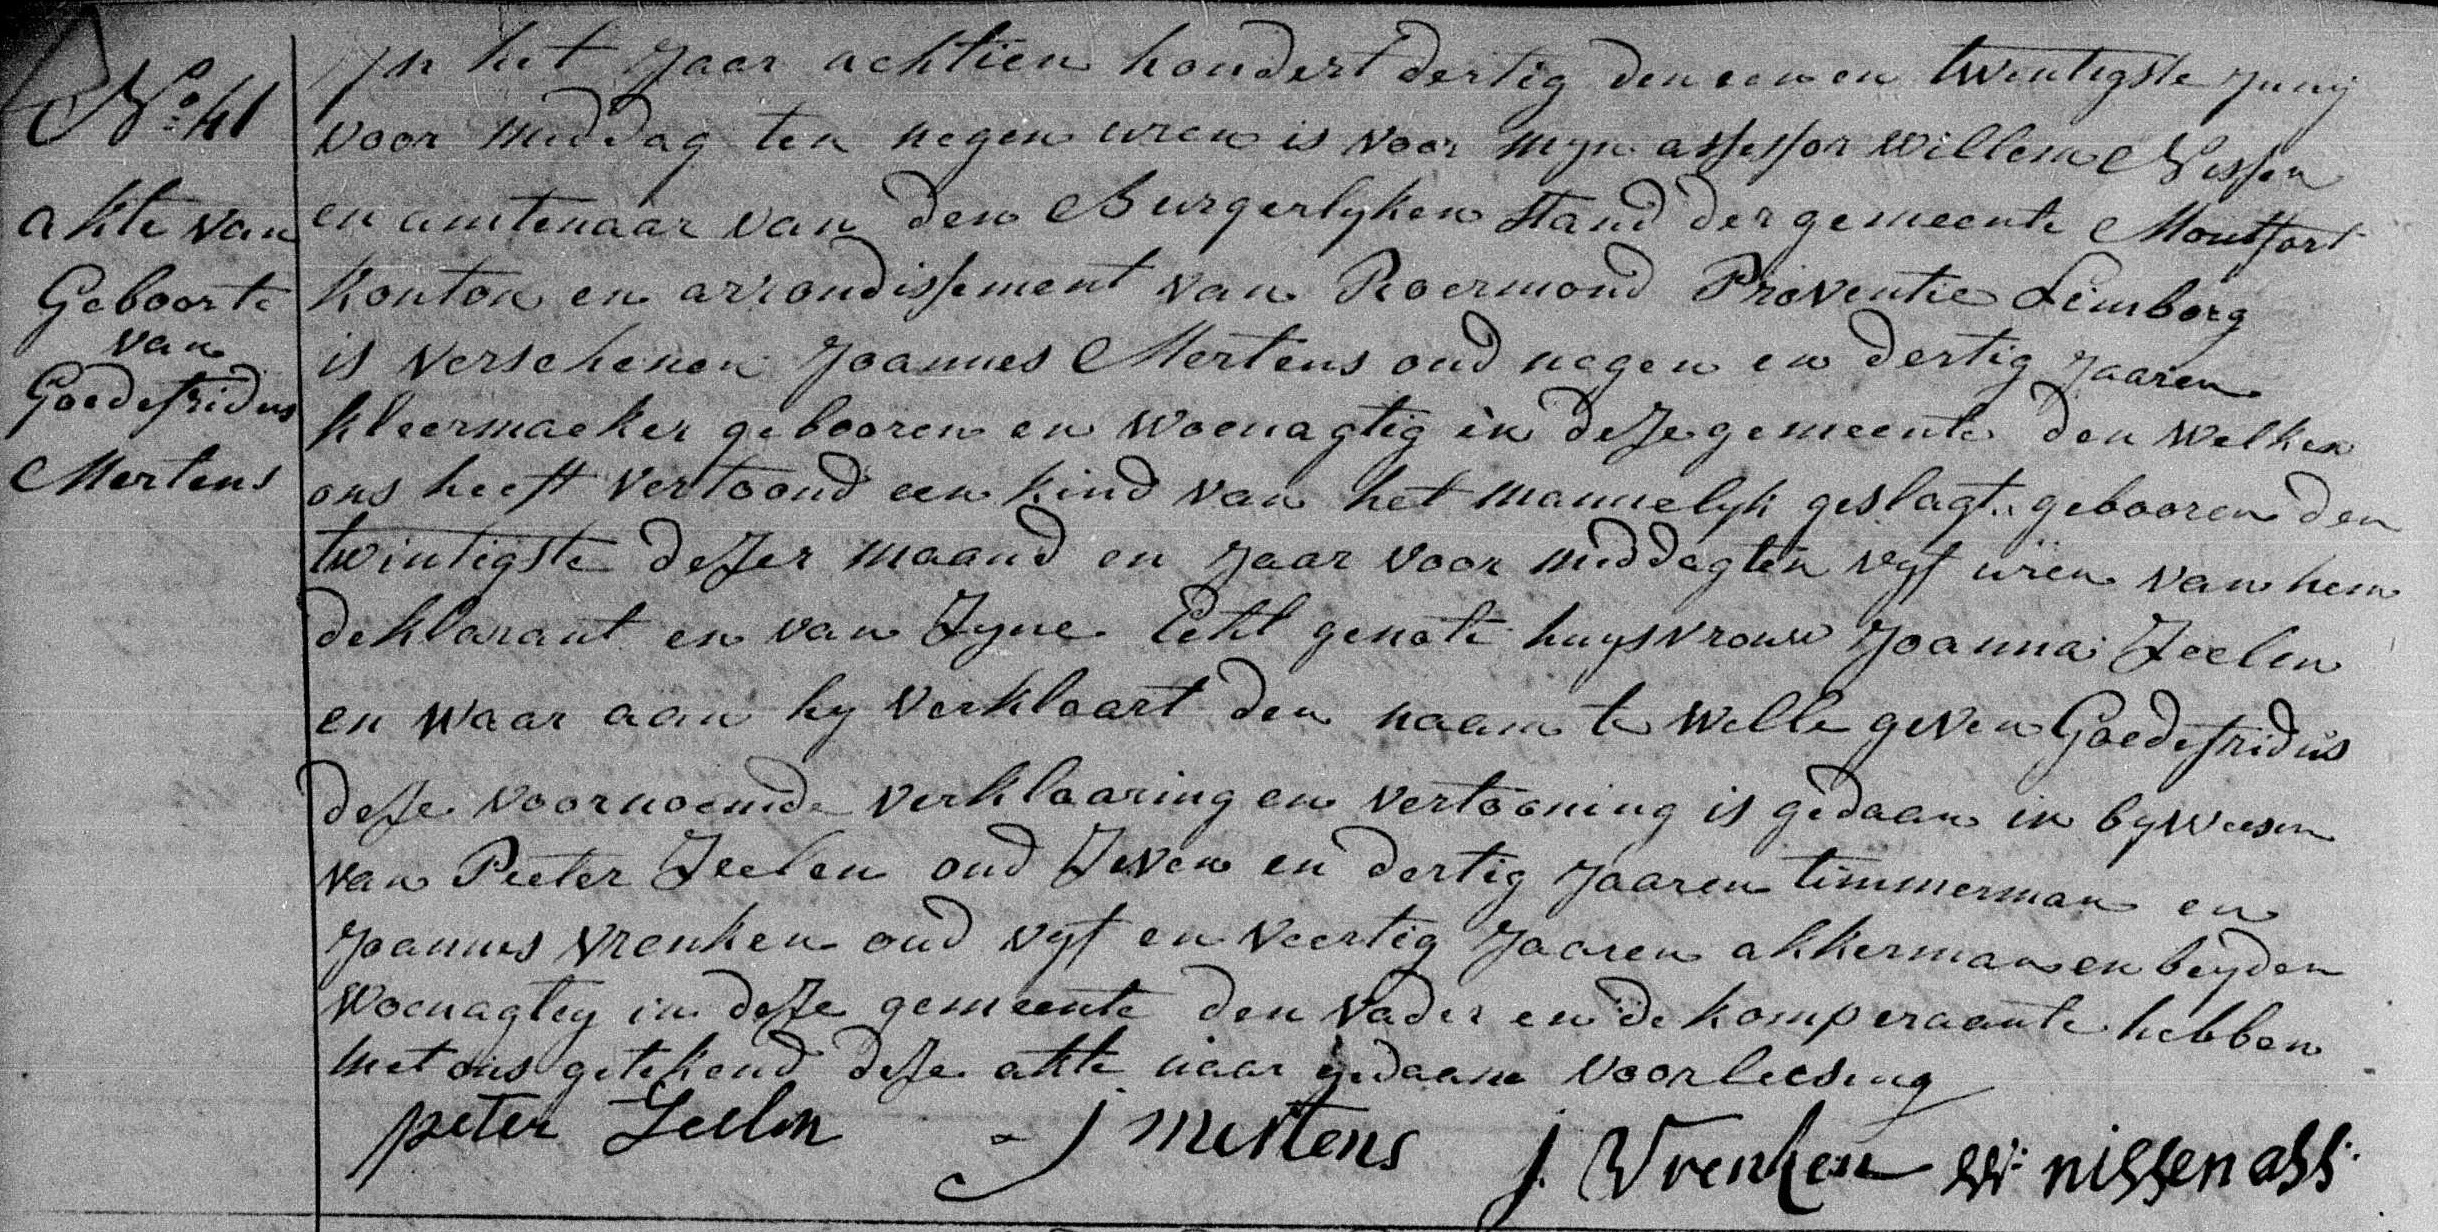 No. 41
akte van
Geboorte
van
Goedefridus
Mertens
Jn het Jaar achtien hondert dertig den een en twentigste Juny
voor middag ten negen uren is voor myn assessor Willem Nissen
en amtenaar van den Burgerlyken stand der gemeente Montfort
Konton en arrondissement van Roermond Proventie Limborg
is verschenen Joannes Mertens oud negen en dertig Jaaren
kleermaeker gebooren en woenagtig in deze gemeente den welken
ons heeft vertoond een kind van het mannelyk geslagt gebooren den
twintigste dezer maand en Jaar voor middag ten vyf uren van hem
deklarant en van Zyne Echt genote huysvrouw Joanna Zeelen
en waar aan hy verklaart den naam te wille geven Goedefridus
deze voornoemde verklaaring en vertooning is gedaan in bywesen
van Peeter Zeelen oud Zeven en dertig Jaaren timmerman en
Joannes Vrenken oud vyf en veertig Jaaren akkerman en beyden
woenagteg in deze gemeente den vader en de komperaante hebben
met ons getekend deze akte naar gedaane voorleesing
peter Zeelen J Mertens J. Vrenken W: nissen ass.